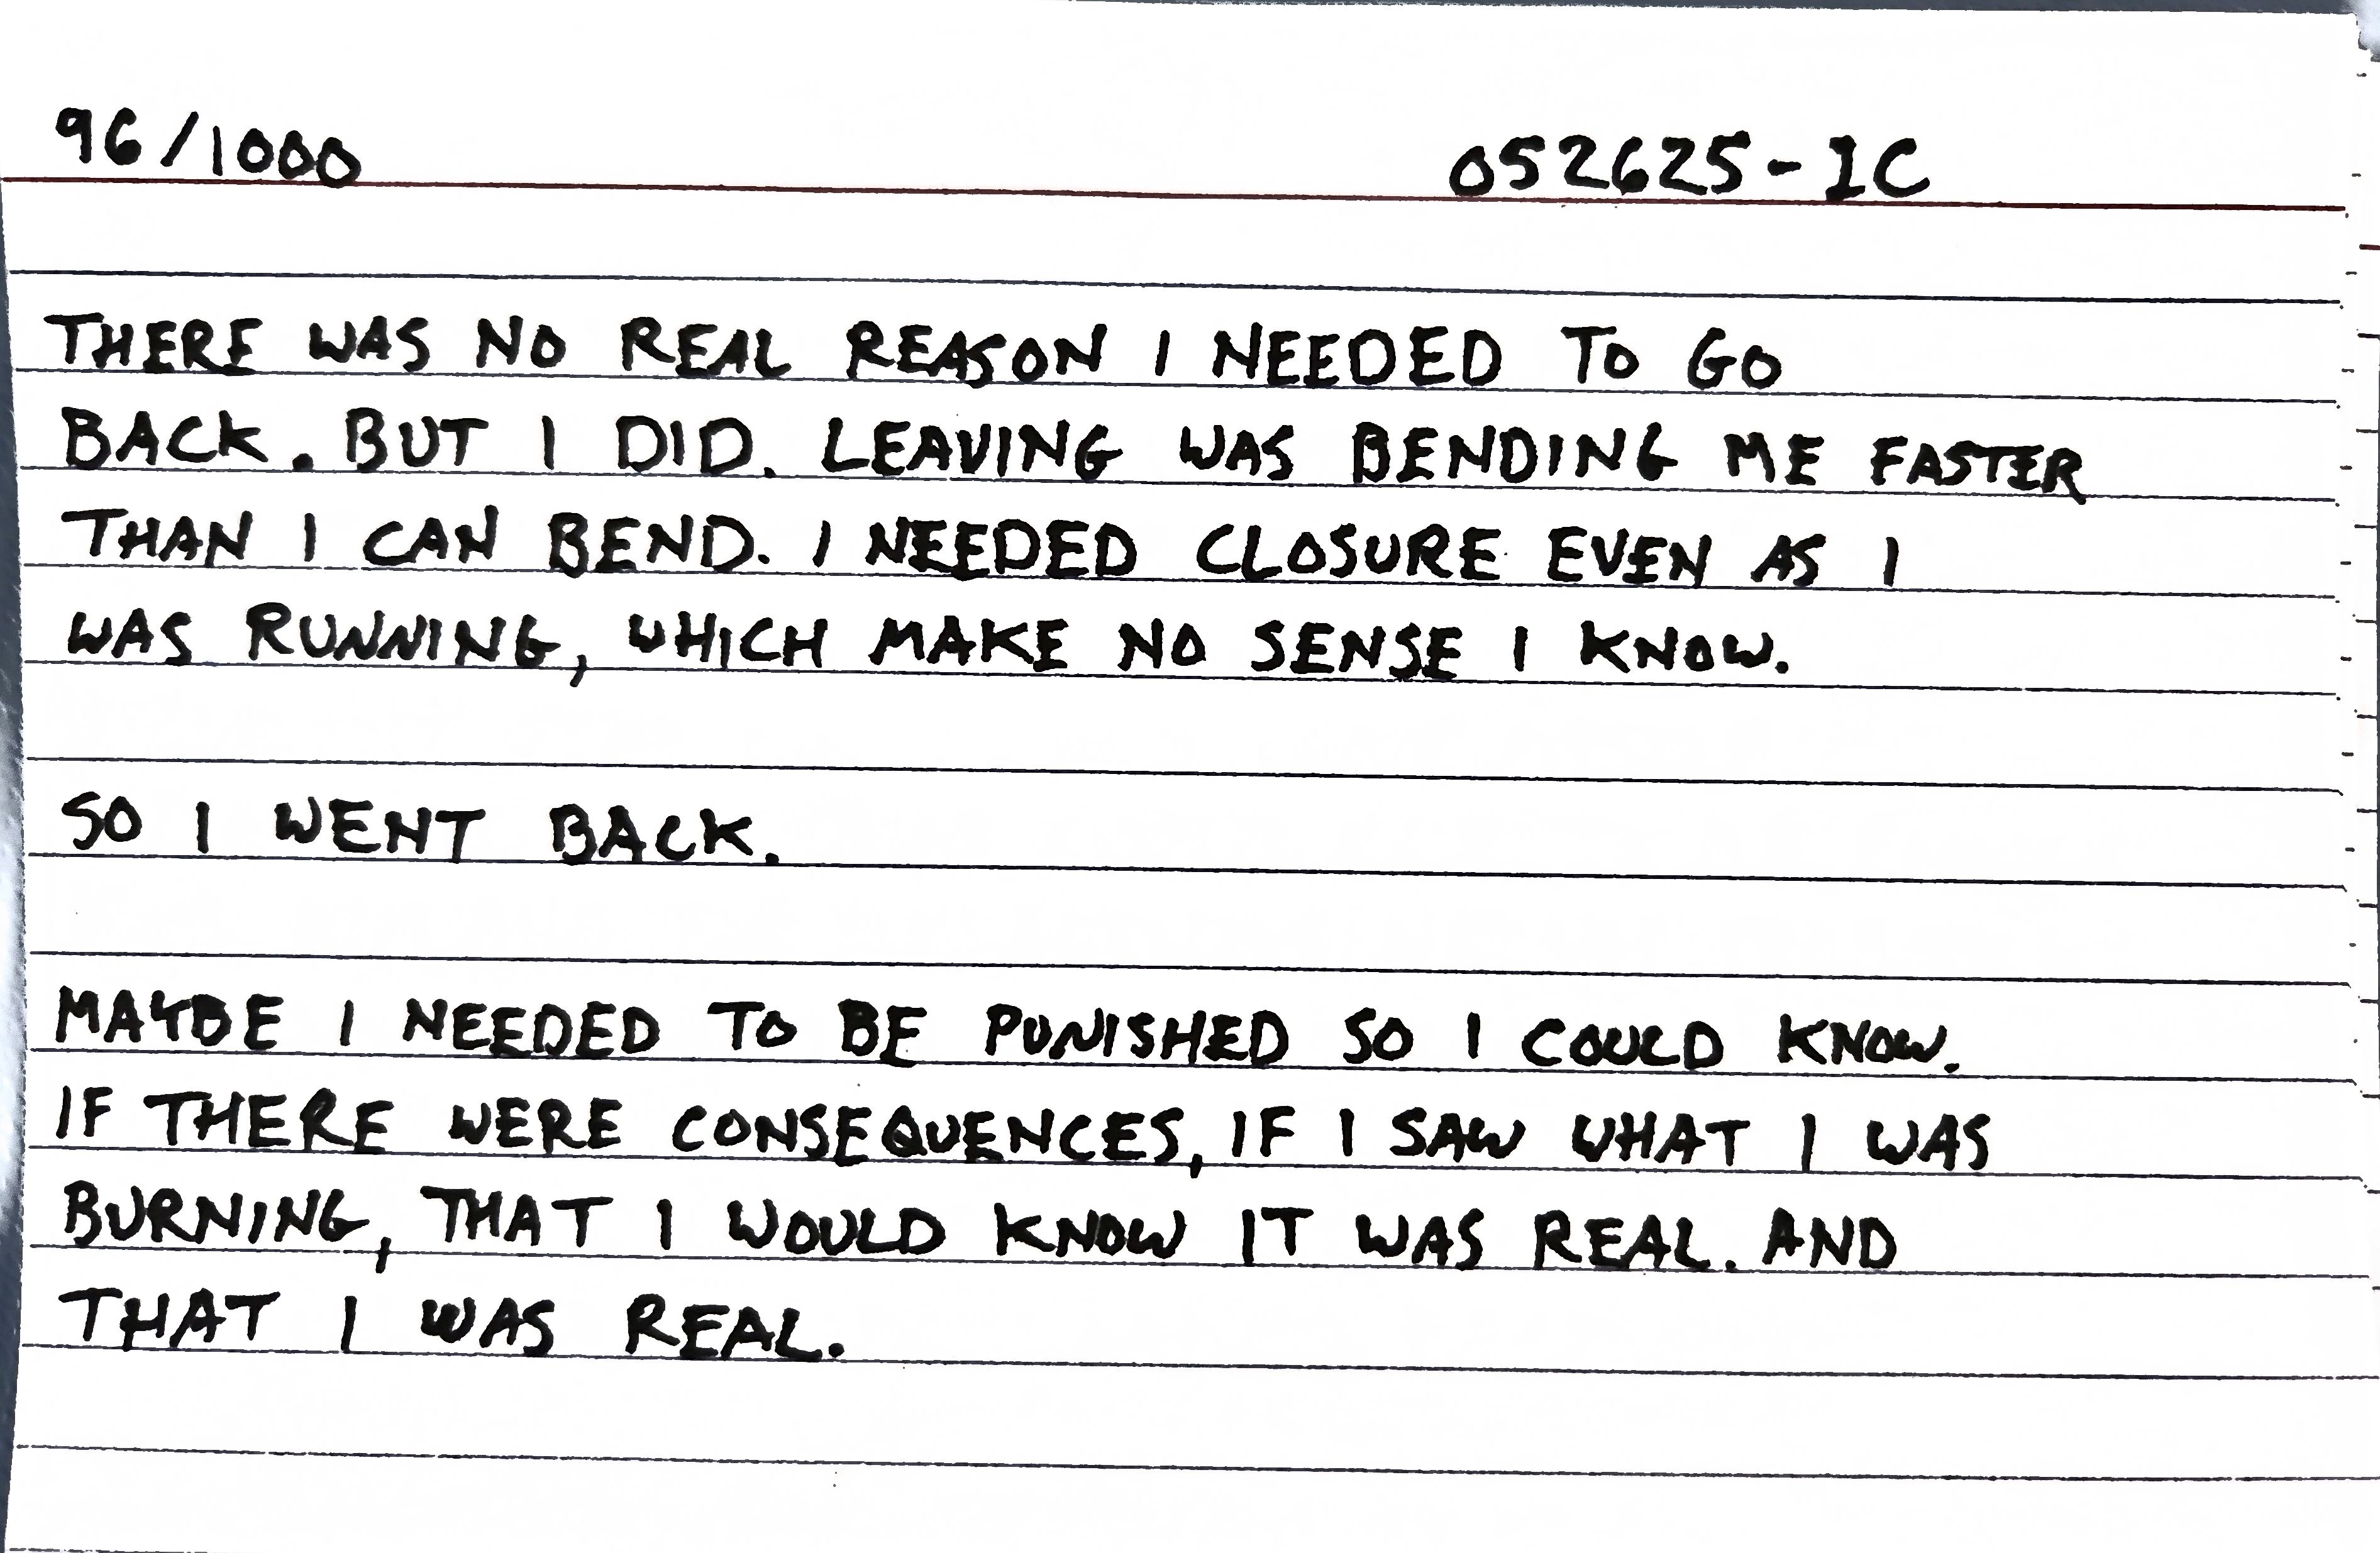 96/1000
052625-1C
THERE WAS NO REAL REASON I NEEDED TO GO
BACK. BUT I DID. LEAVING WAS BENDING ME FASTER
THAN I CAN BEND. I NEEDED CLOSURE EVEN AS I
WAS RUNNING, WHICH MAKE NO SENSE I KNOW.
SO I WENT BACK.
MAYBE I NEEDED TO BE PUNISHED SO I COULD KNOW.
IF THERE WERE CONSEQUENCES, IF I SAW WHAT I WAS
BURNING, THAT I WOULD KNOW IT WAS REAL. AND
THAT I WAS REAL.